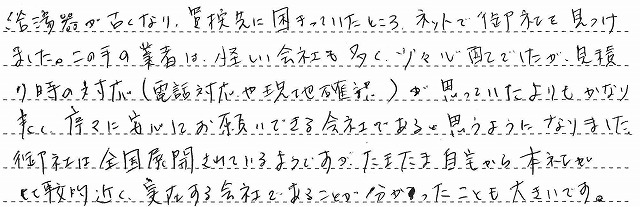 給湯器が古くなり、置換先に困まっていたところ、ネットで御社を見つけ
ました。この手の業者は、怪しい会社も多く、少々心配でしたが、見積
り時の対応(電話対応や現地確認)が思っていたよりもかなり
良く、序々に安心してお願いできる会社であると思うようになりました
御社は全国展開されているようですが、たまたま自宅から本社が
比較的近く、実在する会社であることが分かったことも大きいです。